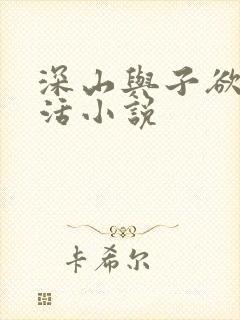 深山與子欲
活小說
卡希尔